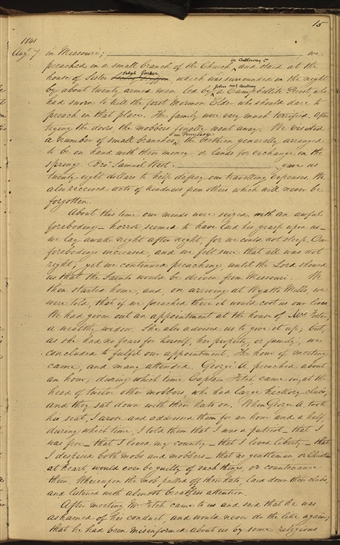 15
1841
Augt 7 in Missouri; we
in Calloway Co
preached in a small branch of the Church and staid at the
house of Sister which was surrounded in the night
John McCartney
by about twenty armed men led by a Campbellite Priest who
had sworn to kill the first Mormon Elder who should dare to
preach in that place. The family were very much terrified. After
trying the doors the mobbers finally went away. We visited
in Tennessee
a number of small branches, the brethren generally arranged
to be on hand with their money or lands for exchange in the
spring. Bro. Samuel West gave us
twenty eight dollars to help defray our travelling expenses. We
also received acts of kindness from others which will never be
forgotten.
About this time our minds were seized with an awful
foreboding— horror seemed to have laid his grasp upon us—
we lay awake night after night, for we could not sleep. Our
forebodings increased, and we felt sure that all was not
right; yet we continued preaching until the Lord showed
us that the Saints would be driven from Missouri. We
then started home, and, on arriving at Wyatts Mills we
were told, that if we preached there it would cost us our lives.
We had given out an appointment at the house of Mrs Foster,
a wealthy widow. She also advised us to give it up; but,
as she had no fears for herself, her property, or family, we
concluded to fulfil our appointment. The hour of meeting
came, and many attended. George A. preached about
an hour; during which time Captain Fitch came in at the
head of twelve other mobbers who had large hickory clubs,
and they sat down with their hats on. When George A. took
his seat, I arose and addressed them for an hour and a half,
during which time, I told them that I was a patriot— that I
was free— that I loved my country— that I loved liberty— that
I despised both mobs and mobbers— that no gentleman or Christian
at heart would ever be guilty of such things, or countenance
them. Whereupon the mob pulled off their hats, laid down their clubs,
and listened with almost breathless attention.
After meeting Mr Fitch came to us and said that he was
ashamed of his conduct, and would never do the like again;
that he had been misinformed about us by some religious